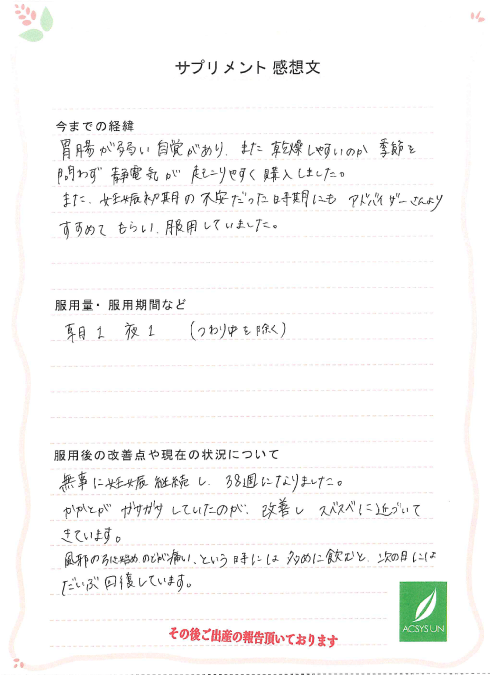 サプリメント 感想文
今までの経緯
胃腸が弱い自覚があり、また乾燥しやすいのか 季節を
問わず 静電気が 起こりやすく購入しました。
また、妊娠初期の不安だった時期にも アドバイザーさんより
すすめて もらい、服用していました。
服用量・服用期間など
朝1 夜1 (つわり中を除く)
服用後の改善点や現在の状況について
無事に妊娠継続し、38週になりました。
かかとが ガサガサしていたのが、改善し スベスベに近づいて
きています。
風邪の引き始めのどが痛い、という時には 多めに飲むと、次の日には
だいぶ回復しています。
ACSYSUN
その後ご出産の報告頂いております